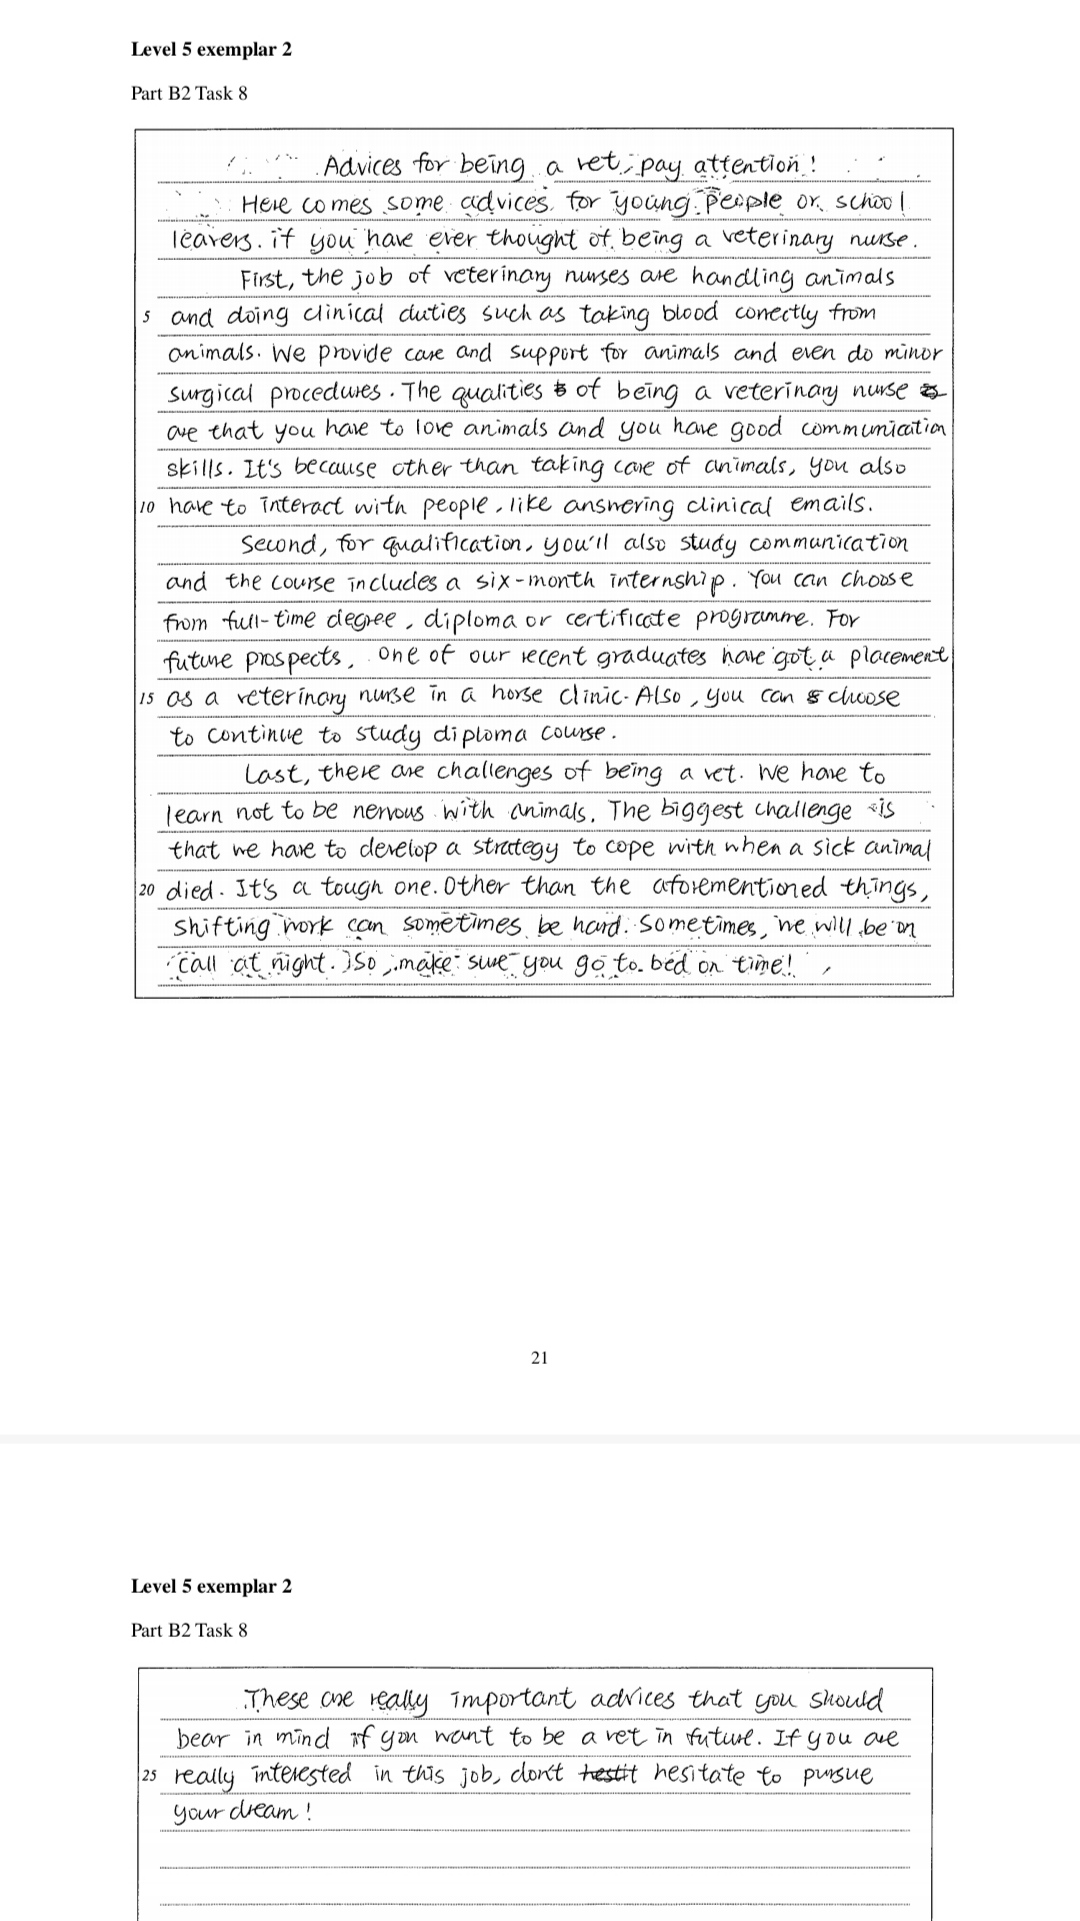 Level 5 exemplar 2
Part B2 Task 8
Advices for being a vet, pay attention!
Here comes some advices for young people or school
leavers. if you have ever thought of being a veterinary nurse.
First, the job of veterinary nurses are handling animals
5 and doing clinical duties such as taking blood correctly from
animals. We provide care and support for animals and even do minor
surgical procedures. The qualities of being a veterinary nurse
are that you have to love animals and you have good communication
skills. It's because other than taking care of animals, you also
10 have to interact with people, like answering clinical emails.
Second, for qualification, you'll also study communication
and the course includes a six-month internship. You can choose
from full-time degree, diploma or certificate programme. For
future prospects, one of our recent graduates have got a placement
15 as a veterinary nurse in a horse clinic. Also, you can choose
to continue to study diploma course.
Last, there are challenges of being a vet. We have to
learn not to be nervous with animals. The biggest challenge is
that we have to develop a strategy to cope with when a sick animal
20 died. It's a tough one. Other than the aforementioned things,
shifting work can sometimes be hard. Sometimes, we will be on
call at night. So, make sure you go to bed on time!
21
Level 5 exemplar 2
Part B2 Task 8
These are really important advices that you should
bear in mind if you want to be a vet in future. If you are
25 really interested in this job, don't hesitate to pursue
your dream!